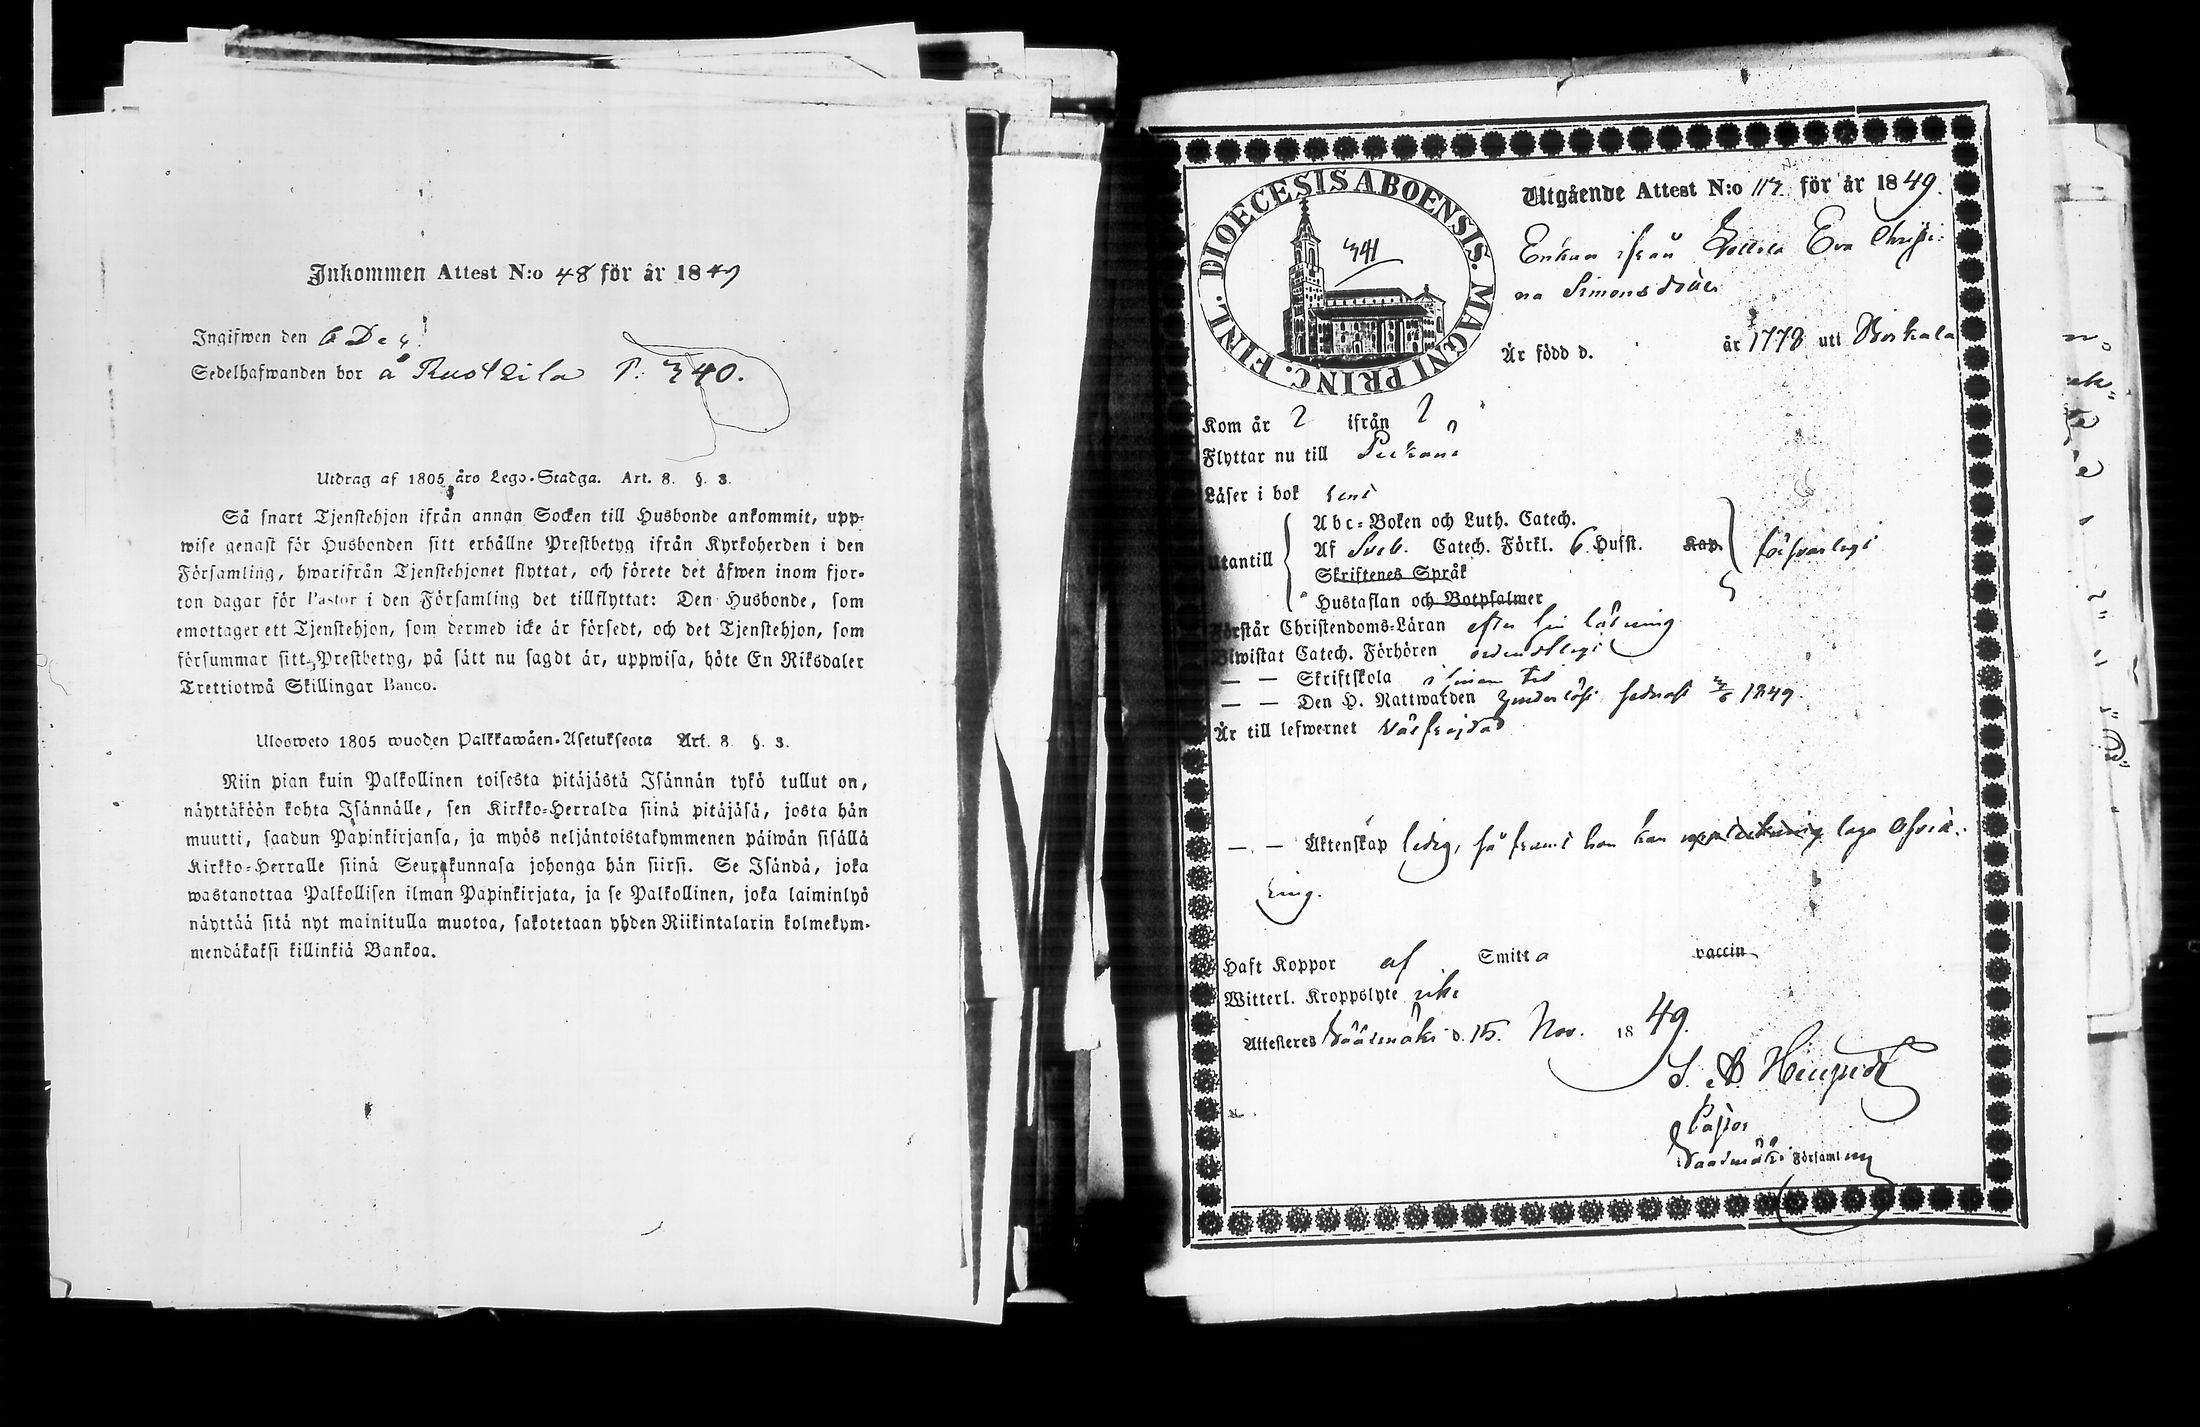 Inkommen Attest N:o 48 för år 1849
Ingifwen den 6 Dec
Sedelhafwanden bor å Rustkila P. 340.
Utdrag af 1805 års Lego-Stadga. Art. 8. §. 3.
Så snart Tjenstehjon ifrån annan Socken till Husbonde ankommit, upp-
wise genast för Husbonden sitt erhållne Prestbetyg ifrån Kyrkoherden i den
Församling, hwarifrån Tjenstehjonet flyttat, och förete det äfwen inom fjor-
ton dagar för Pastor i den Församling det tillflyttat: Den Husbonde, som
emottager ett Tjenstehjon, som dermed icke är försedt, och det Tjenstehjon, som
försummar sitt Prestbetyg, på sätt nu sagdt är, uppwisa, böte En Riksdaler
Trettiotwå Skillingar Banco.
Ulosweto 1805 wuoden Palkkawäen-Asetuksesta Art. 8. §. 3.
Niin pian kuin Palkollinen toisesta pitäjästä Isännän tykö tullut on,
näyttäköön kohta Isännälle, sen Kirkko-Herralda siinä pitäjäsä, josta hän
muutti, saadun Papinkirjansa, ja myös neljäntoistakymmenen päiwän sisällä
Kirkko-Herralle siinä Seurakunnasa johonga hän siirsi. Se Isändä, joka
wastanottaa Palkollisen ilman Papinkirjata, ja se Palkollinen, joka laiminlyö
näyttää sitä nyt mainitulla muotoa, sakotetaan yhden Riikintalarin kolmekym-
mendäkaksi killinkiä Bankoa.
DIOECESIS ABOENSIS. MAGNI PRINC. FINL.
341
Utgående Attest N:o 117 för år 1849.
Enkan ifrån Eva Christi-
na Simonsdotter
Är född d. år 1778 uti
Kom år ? ifrån ?
Flyttar nu till
Läser i bok rent
Utantill
Abc-Boken och Luth. Catech.
Af Sveb. Catech. Förkl. 6 Hufst. Kap. försvarligt
Skriftenes Språk
Hustaflan och Botpsalmer
Förstår Christendoms-Läran efter sin läsning
Biwistat Catech. Förhören ordentligt
— — Skriftskola i sinom tid
— — Den H. Nattwarden senast 1849.
Är till lefwernet välfrejdad
— — Äktenskap ledig, så framt hon kan laga afvitt-
ring.
Haft Koppor af Smitta vaccin
Witterl. Kroppslyte icke
Attesteres Sääksmäki d. 15. Nov. 1849.
Pastor
Sääksmäki Församling